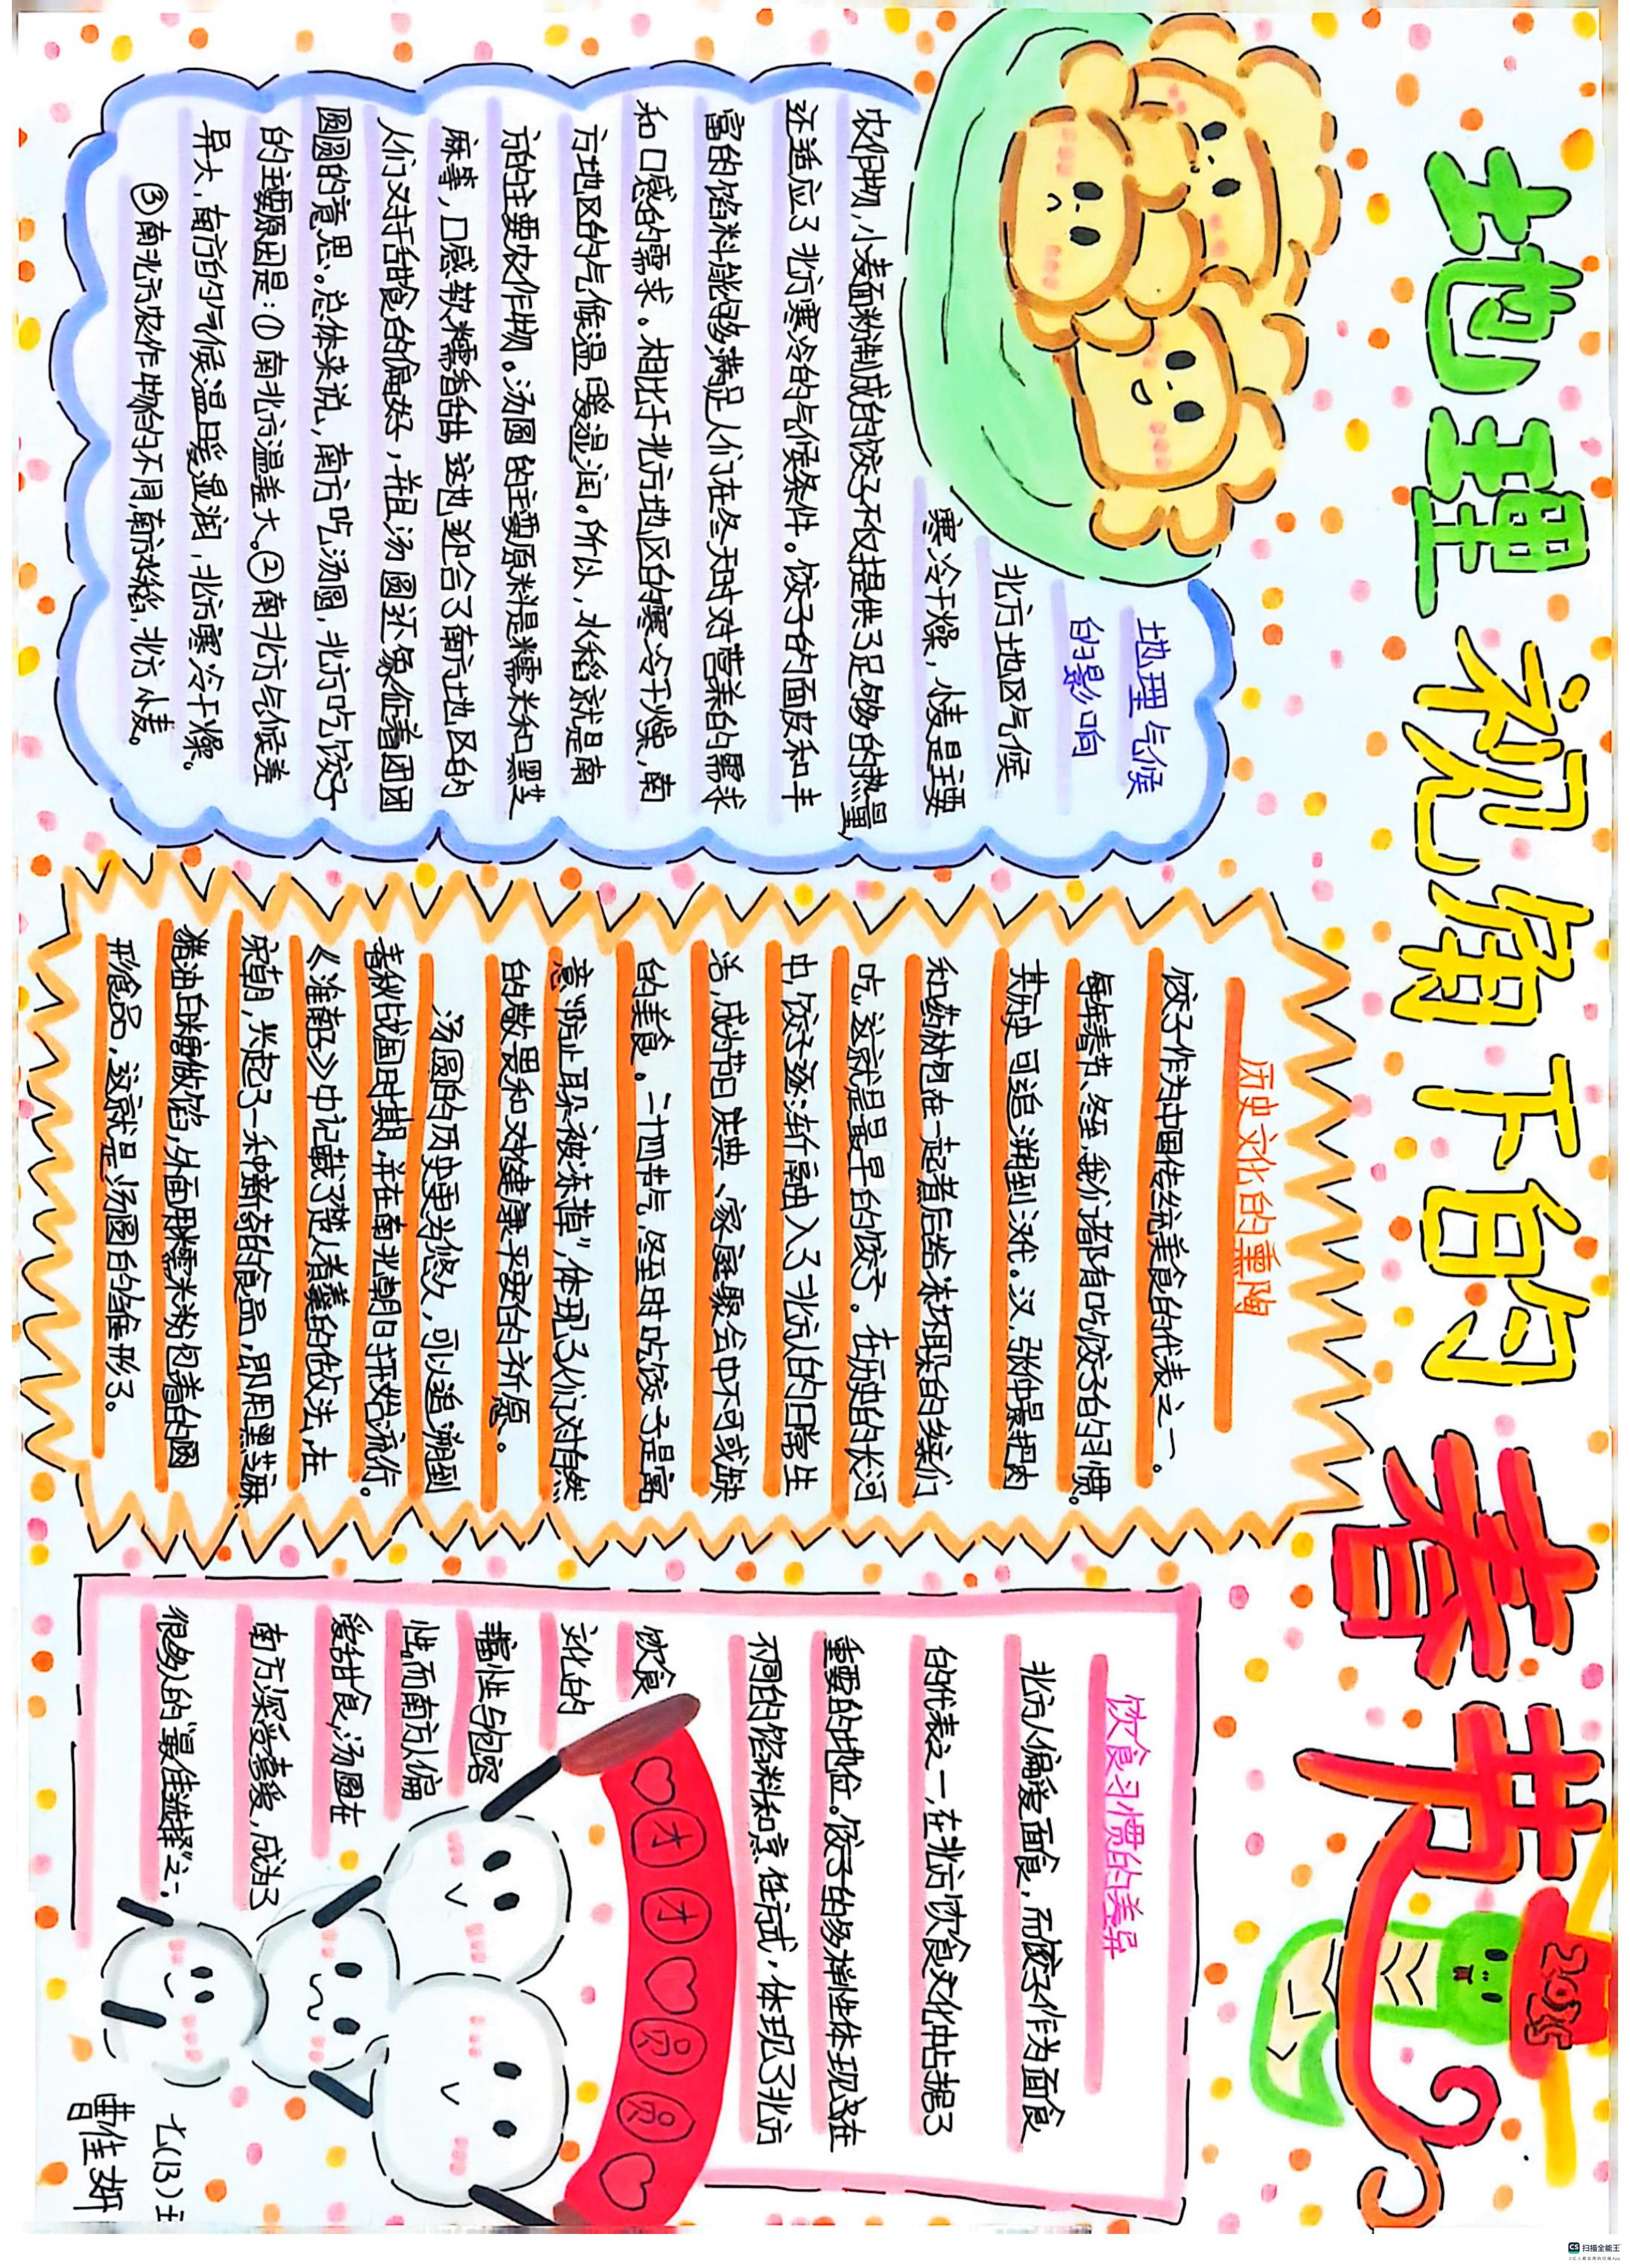 地理视角下的春节
2025
地理气候
的影响
北方地区气候
寒冷干燥，小麦是主要
农作物，小麦面粉制成的饺子不仅提供了足够的热量
还适应了北方寒冷的气候条件。饺子的面皮和丰
富的馅料能够满足人们在冬天时对营养的需求
和口感的需求。相比于北方地区的寒冷干燥，南
方地区的气候温暖湿润。所以，水稻就是南
方的主要农作物。汤圆的主要原料是糯米和黑芝
麻等，口感软糯香甜 这也迎合了南方地区的
人们对甜食的偏好，并且，汤圆还象征着团团
圆圆的意思。总体来说，南方吃汤圆，北方吃饺子
的主要原因是：①南北方温差大。②南北方气候差
异大，南方的气候温暖湿润，北方寒冷干燥。
③南北方农作物的不同，南方水稻，北方小麦。
历史文化的熏陶
饺子作为中国传统美食的代表之一。
每年春节、冬至，我们都有吃饺子的习惯。
其历史可追溯到汉代。汉，张仲景把肉
和药材包在一起煮后给冻坏耳朵的乡亲们
吃，这就是最早的饺子。在历史的长河
中，饺子逐渐融入了北方人的日常生
活，成为节日庆典、家庭聚会中不可或缺
的美食。二十四节气，冬至时吃饺子是寓
意“防止耳朵被冻掉”，体现了人们对自然
的敬畏和对健康平安的祈愿。
汤圆的历史更为悠久，可以追溯到
春秋战国时期，并在南北朝时开始流行。
《淮南子》中记载了楚人煮羹的做法，在
宋朝，兴起了一种新奇的食品，即用黑芝麻
猪油白糖做馅，外面用糯米粉包着的圆
形食品，这就是汤圆的雏形了。
饮食习惯的差异
北方人偏爱面食，而饺子作为面食
的代表之一，在北方饮食文化中占据了
重要的地位。饺子的多样性体现在
不同的馅料和烹饪方式，体现了北方
饮食
文化的
丰富性与包容
性。而南方人偏
爱甜食，汤圆在
南方深受喜爱，成为了
很多人的“最佳选择”之一。
团团圆圆
七(13)王
曹佳妍
CS 扫描全能王
3亿人都在用的扫描App